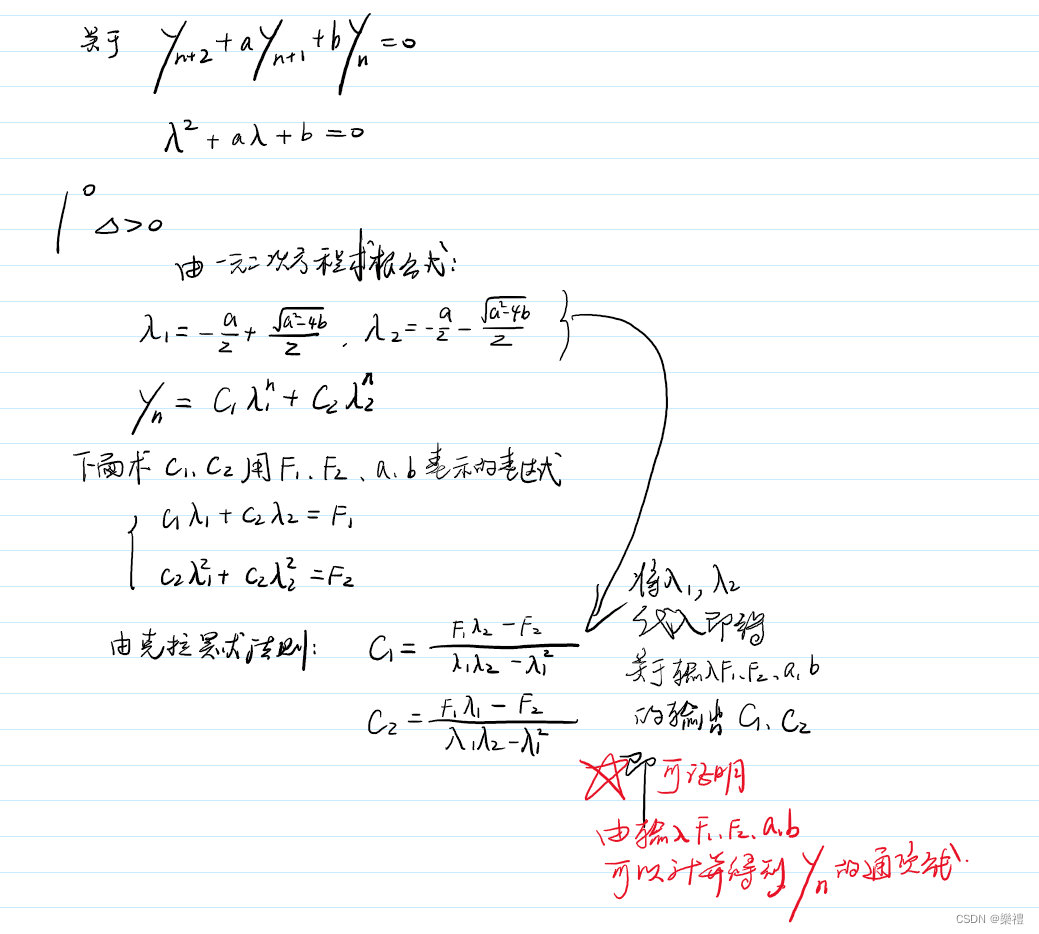 关于 y_{n+2} + a y_{n+1} + b y_n = 0
λ² + aλ + b = 0
1° Δ>0
由一元二次方程求根公式:
λ₁ = -a/2 + √(a²-4b)/2 , λ₂ = -a/2 - √(a²-4b)/2
y_n = C₁λ₁ⁿ + C₂λ₂ⁿ
下面求 C₁、C₂ 用 F₁、F₂、a、b 表示的表达式
C₁λ₁ + C₂λ₂ = F₁
C₂λ₁² + C₂λ₂² = F₂
由克拉默法则: C₁ = (F₁λ₂ - F₂)/(λ₁λ₂ - λ₁²)
C₂ = (F₁λ₁ - F₂)/(λ₁λ₂ - λ₁²)
将λ₁, λ₂
代入即得
关于输入F₁、F₂、a、b
的输出 C₁、C₂
即可证明
由输入 F₁、F₂、a、b
可以计算得到 y_n 的通项式.
CSDN @樂禮